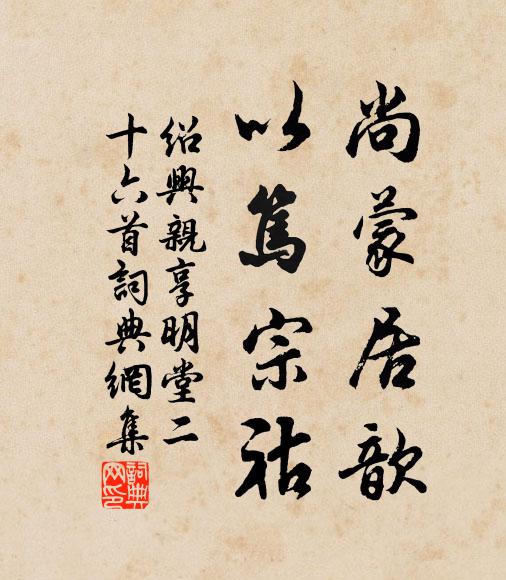 尚蒙居歆
以篤宗祜
紹興親享明堂二
十六首詞典網集
詞典
网印